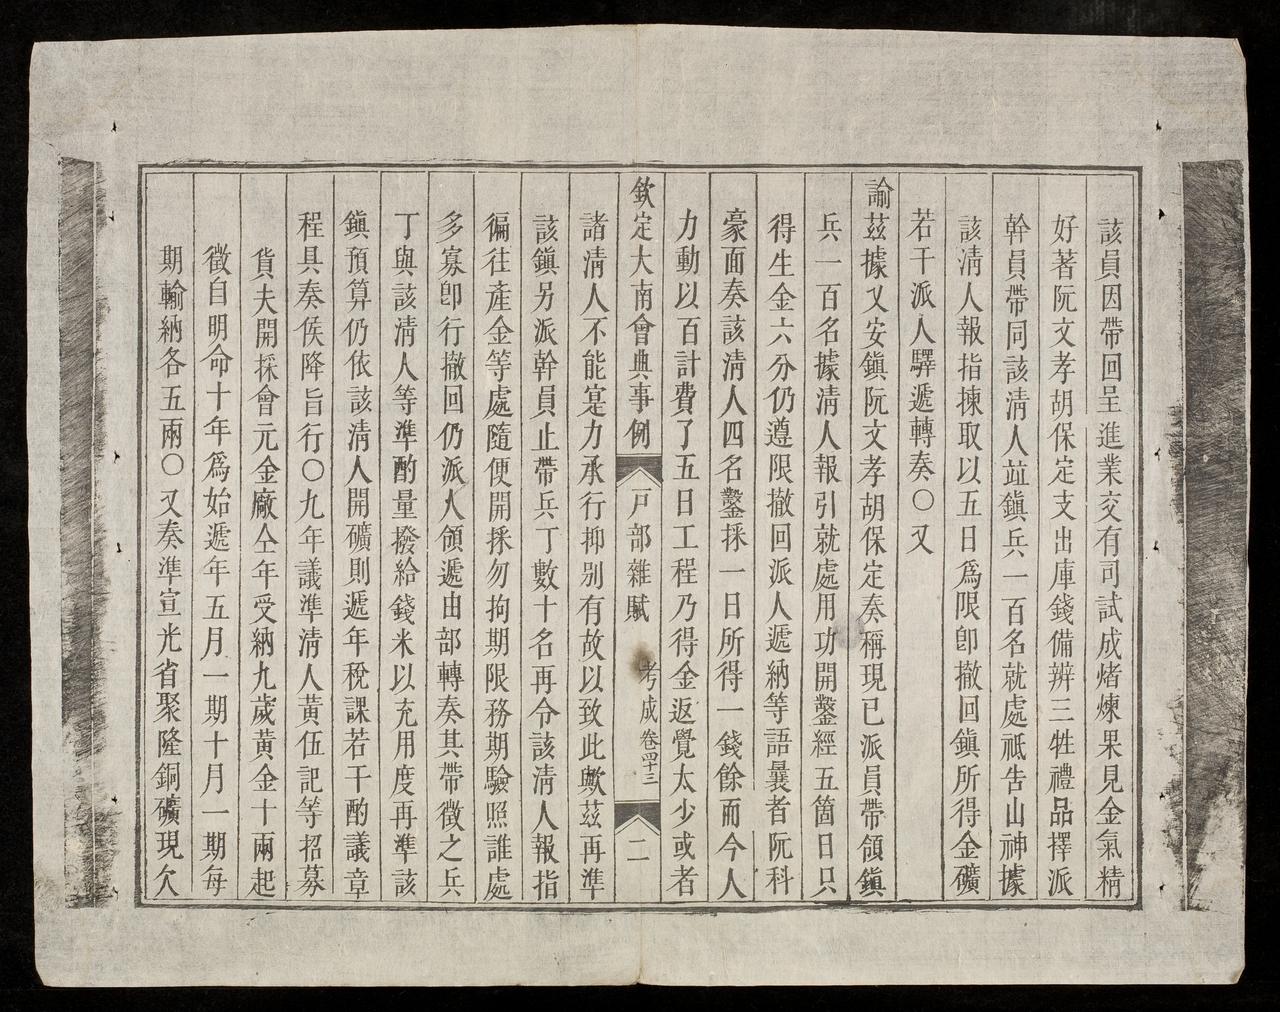 該員因帶回呈進業交有司試成煆煉果見金氣精
好著阮文孝胡保定支出庫錢備辨三牲禮品擇派
幹員帶同該淸人竝鎮兵一百名就處祗告山神據
該淸人報指揀取以五日爲限卽撤回鎮所得金礦
若干派人驛遞轉奏○又
諭茲據乂安鎮阮文孝胡保定奏稱現已派員帶領鎮
兵一百名據淸人報引就處用功開鑿經五箇日只
得生金六分仍遵限撤回派人遞納等語曩者阮科
豪面奏該淸人四名鑿採一日所得一錢餘而今人
力動以百計費了五日工程乃得金返覺太少或者
欽定大南會典事例 戸部雜賦 考成 卷四十三 二
諸淸人不能寔力承行抑别有故以致此歟茲再準
該鎮另派幹員止帶兵丁數十名再令該淸人報指
徧往產金等處隨便開採勿拘期限務期驗照誰處
多寡卽行撤回仍派人領遞由部轉奏其帶徵之兵
丁與該淸人等準酌量撥給錢米以充用度再準該
鎮預算仍依該淸人開礦則遞年稅課若干酌議章
程具奏侯降旨行○九年議準淸人黃伍記等招募
貨夫開採會元金廠仝年受納九歲黃金十兩起
徵自明命十年爲始遞年五月一期十月一期每
期輸納各五兩○又奏準宣光省聚隆銅礦現欠